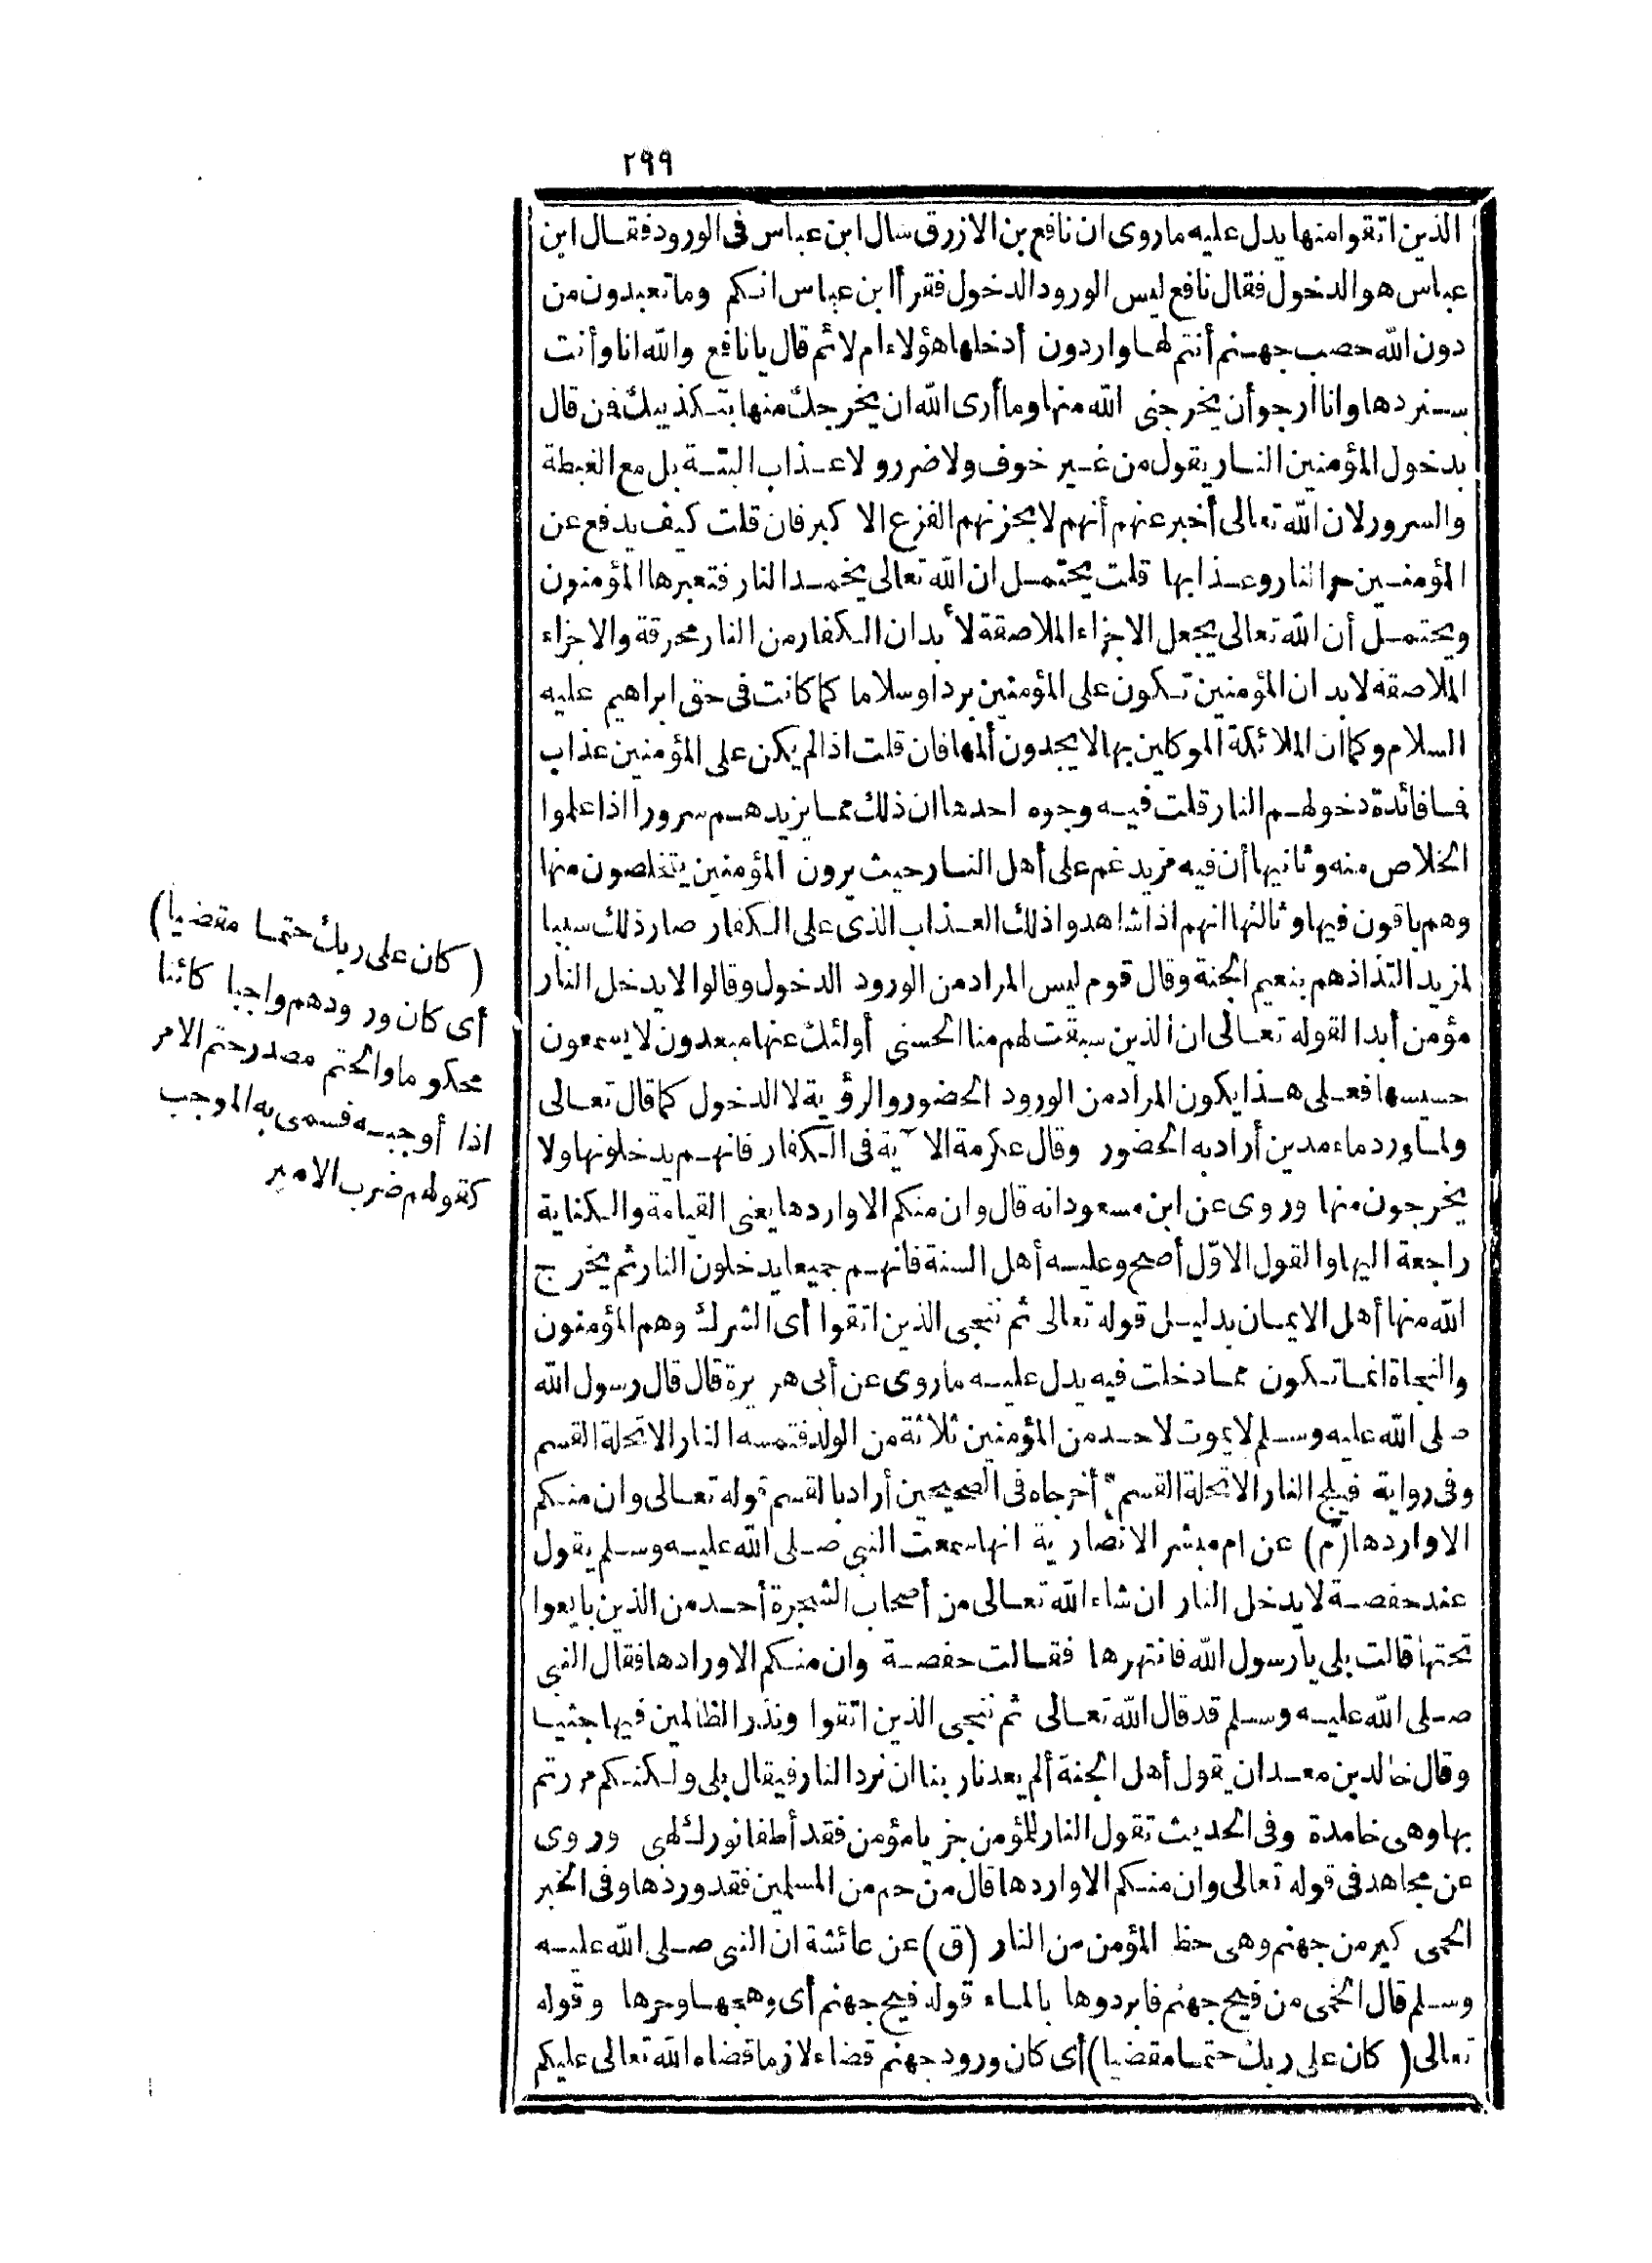 ٢٩٩
الذين اتقوا منها يدل عليه ما روى ان نافع بن الازرق سال ابن عباس فى الورود فقال ابن
عباس هو الدخول فقال نافع ليس الورود الدخول فقرأ ابن عباس انكم وما تعبدون من
دون الله حصب جهنم أنتم لها واردون أدخلها هؤلاء ام لا ثم قال يا نافع والله انا وأنت
سنردها وانا ارجو أن يخرجنى الله منها وما أرى الله ان يخرجك منها بتكذيبك فمن قال
بدخول المؤمنين النار يقول من غير خوف ولا ضرر ولا عذاب البتة بل مع الغبطة
والسرور لان الله تعالى أخبر عنهم أنهم لا يحزنهم الفزع الاكبر فان قلت كيف يدفع عن
المؤمنين حر النار وعذابها قلت يحتمل ان الله تعالى يخمد النار فتعبرها المؤمنون
ويحتمل أن الله تعالى يجعل الاجزاء الملاصقة لأبدان الكفار من النار محرقة والاجزاء
الملاصقة لابدان المؤمنين تكون على المؤمنين بردا وسلاما كما كانت فى حق ابراهيم عليه
السلام وكما أن الملائكة الموكلين بها لا يجدون ألمها فان قلت اذا لم يكن على المؤمنين عذاب
فما فائدة دخولهم النار قلت فيه وجوه احدها ان ذلك مما يزيدهم سرورا اذا علموا
الخلاص منه وثانيها أن فيه مزيد غم على أهل النار حيث يرون المؤمنين يتخلصون منها
وهم باقون فيها وثالثها انهم اذا شاهدوا ذلك العذاب الذى على الكفار صار ذلك سببا
لمزيد التذاذهم بنعيم الجنة وقال قوم ليس المراد من الورود الدخول وقالوا لا يدخل النار
مؤمن أبدا لقوله تعالى ان الذين سبقت لهم منا الحسنى أولئك عنها مبعدون لا يسمعون
حسيسها فعلى هذا يكون المراد من الورود الحضور والرؤية لا الدخول كما قال تعالى
ولما ورد ماء مدين أراد به الحضور وقال عكرمة الآية فى الكفار فانهم يدخلونها ولا
يخرجون منها وروى عن ابن مسعود انه قال وان منكم الا واردها يعنى القيامة والكناية
راجعة اليها والقول الاوّل أصح وعليه أهل السنة فانهم جميعا يدخلون النار ثم يخرج
الله منها أهل الايمان بدليل قوله تعالى ثم ننجى الذين اتقوا أى الشرك وهم المؤمنون
والنجاة انما تكون مما دخلت فيه يدل عليه ما روى عن أبى هريرة قال قال رسول الله
صلى الله عليه وسلم لا يموت لاحد من المؤمنين ثلاثة من الولد فتمسه النار الا تحلة القسم
وفى رواية فيلج النار الا تحلة القسم أخرجاه فى الصحيحين أراد بالقسم قوله تعالى وان منكم
الا واردها (م) عن ام مبشر الانصارية انها سمعت النبي صلى الله عليه وسلم يقول
عند حفصة لا يدخل النار ان شاء الله تعالى من أصحاب الشجرة أحد من الذين بايعوا
تحتها قالت بلى يا رسول الله فانتهرها فقالت حفصة وان منكم الا ورادها فقال النبى
صلى الله عليه وسلم قد قال الله تعالى ثم ننجى الذين اتقوا ونذر الظالمين فيها جثيا
وقال خالد بن معدان يقول أهل الجنة ألم يعدنا ربنا ان نرد النار فيقال بلى ولكنكم مررتم
بها وهى خامدة وفى الحديث تقول النار للمؤمن جز يا مؤمن فقد أطفا نورك لهبى وروى
عن مجاهد فى قوله تعالى وان منكم الا واردها قال من حم من المسلمين فقد وردها وفى الخبر
الحمى كير من جهنم وهى حظ المؤمن من النار (ق) عن عائشة ان النبى صلى الله عليه
وسلم قال الحمى من فيح جهنم فابردوها بالماء قوله فيح جهنم أى وهجها وحرها وقوله
تعالى (كان على ربك حتما مقضيا) أى كان ورود جهنم قضاء لازما قضاه الله تعالى عليكم
(كان على ربك حتما مقضيا)
أى كان ورودهم واجبا كائنا
محكوما والحتم مصدر حتم الامر
اذا أوجبه فسمى به الموجب
كقولهم ضرب الامير